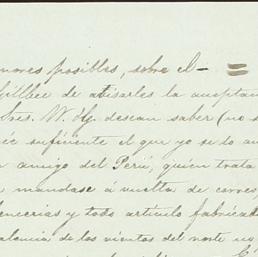 mores posibles, sobre el
de avisarles la aceptan
desean saber (no s
suficiente el que yo se lo an
amigo del Perú, quien trata
mandase á vuelta de correo,
lencerias y todo artículo fabricad
de los vientos del norte no